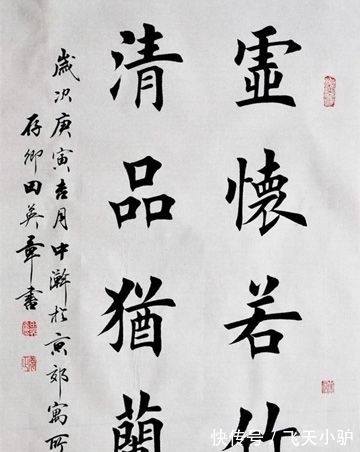 虛懷若竹
清品猶蘭
歲次庚寅吉月中澣於京郊寓所
存卿田英章書
快传号/飞天小驴